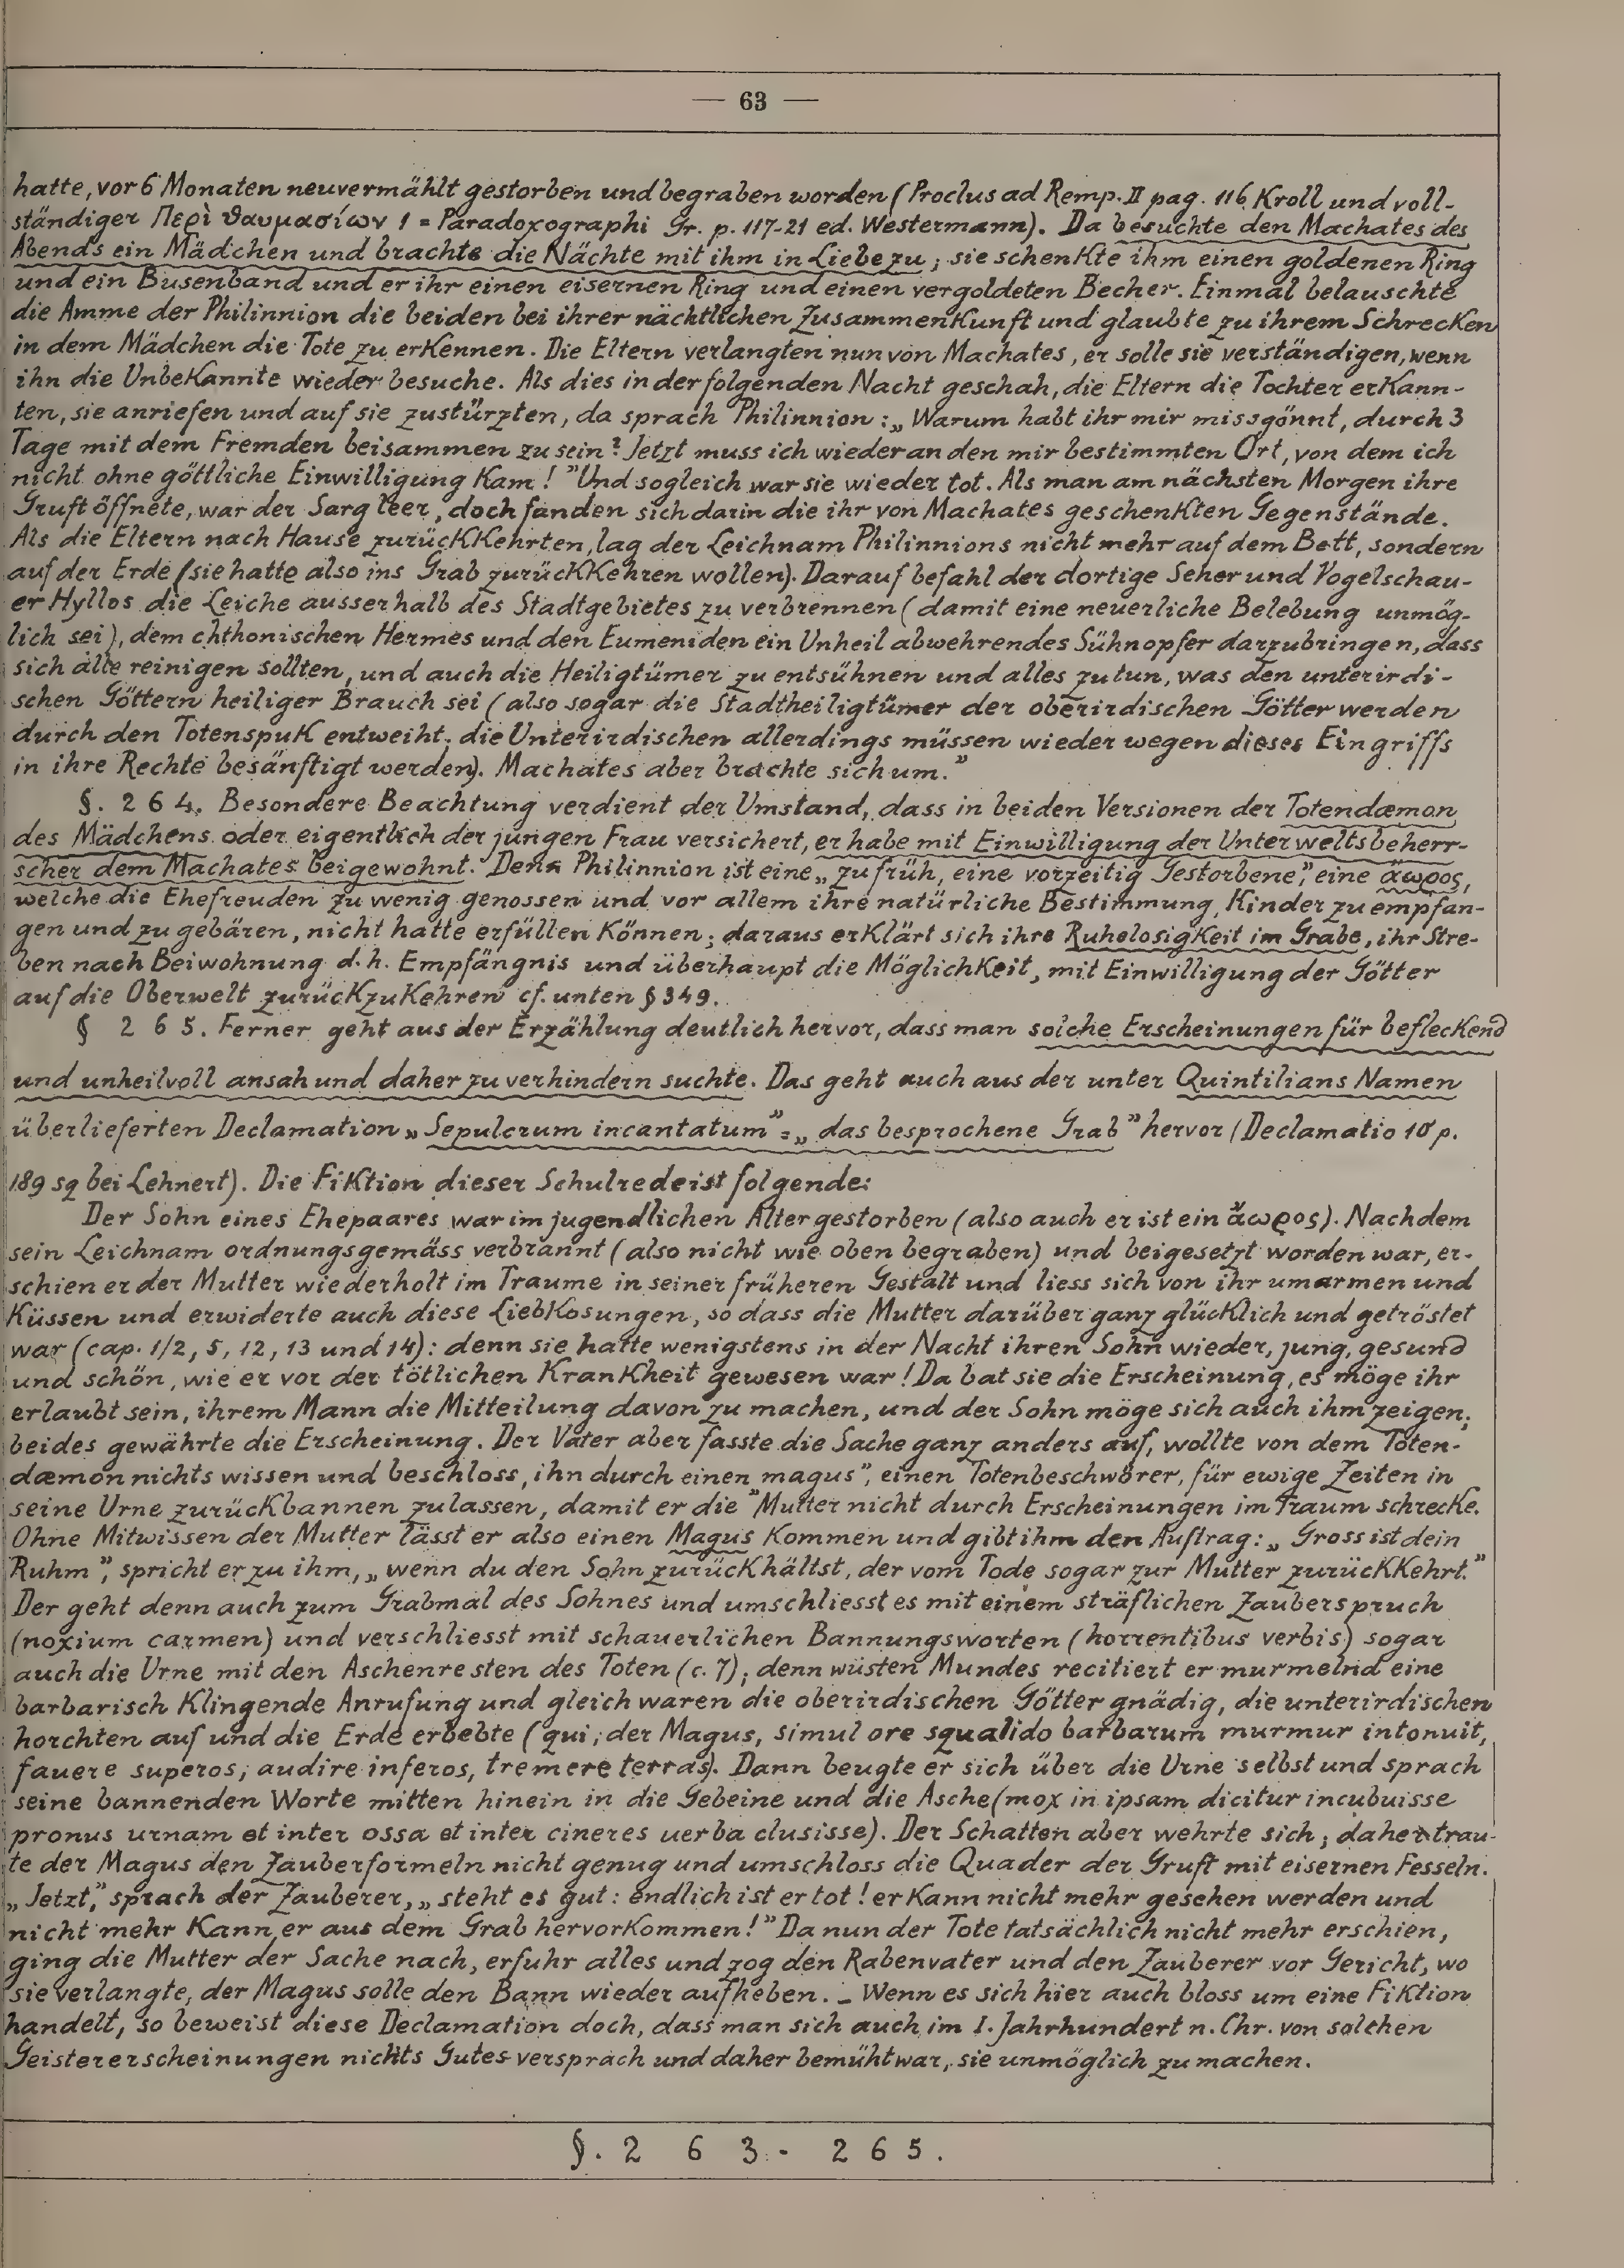 — 63 —
hatte, vor 6 Monaten neuvermählt gestorben und begraben worden (Proclus ad Remp. II pag. 116 Kroll und voll-
ständiger Περὶ θαυμασίων 1 = Paradoxographi Gr. p. 117-21 ed. Westermann). Da besuchte den Machates des
Abends ein Mädchen und brachte die Nächte mit ihm in Liebe zu; sie schenkte ihm einen goldenen Ring
und ein Busenband und er ihr einen eisernen Ring und einen vergoldeten Becher. Einmal belauschte
die Amme der Philinnion die beiden bei ihrer nächtlichen Zusammenkunft und glaubte zu ihrem Schrecken
in dem Mädchen die Tote zu erkennen. Die Eltern verlangten nun von Machates, er solle sie verständigen, wenn
ihn die Unbekannte wieder besuche. Als dies in der folgenden Nacht geschah, die Eltern die Tochter erkann-
ten, sie anriefen und auf sie zustürzten, da sprach Philinnion: „Warum habt ihr mir missgönnt, durch 3
Tage mit dem Fremden beisammen zu sein? Jetzt muss ich wieder an den mir bestimmten Ort, von dem ich
nicht ohne göttliche Einwilligung kam!" Und sogleich war sie wieder tot. Als man am nächsten Morgen ihre
Gruft öffnete, war der Sarg leer, doch fanden sich darin die ihr von Machates geschenkten Gegenstände.
Als die Eltern nach Hause zurückkehrten, lag der Leichnam Philinnions nicht mehr auf dem Bett, sondern
auf der Erde (sie hatte also ins Grab zurückkehren wollen). Darauf befahl der dortige Seher und Vogelschau-
er Hyllos die Leiche ausserhalb des Stadtgebietes zu verbrennen (damit eine neuerliche Belebung unmög-
lich sei), dem chthonischen Hermes und den Eumeniden ein Unheil abwehrendes Sühnopfer darzubringen, dass
sich alle reinigen sollten, und auch die Heiligtümer zu entsühnen und alles zu tun, was den unterirdi-
schen Göttern heiliger Brauch sei (also sogar die Stadtheiligtümer der oberirdischen Götter werden
durch den Totenspuk entweiht; die Unterirdischen allerdings müssen wieder wegen dieses Eingriffs
in ihre Rechte besänftigt werden). Machates aber brachte sich um."
§. 264. Besondere Beachtung verdient der Umstand, dass in beiden Versionen der Totendæmon
des Mädchens oder eigentlich der jungen Frau versichert, er habe mit Einwilligung der Unterweltsbeherr-
scher dem Machates beigewohnt. Denn Philinnion ist eine „zu früh, eine vorzeitig Gestorbene", eine ἄωρος,
welche die Ehefreuden zu wenig genossen und vor allem ihre natürliche Bestimmung, Kinder zu empfan-
gen und zu gebären, nicht hatte erfüllen können; daraus erklärt sich ihre Ruhelosigkeit im Grabe, ihr Stre-
ben nach Beiwohnung d. h. Empfängnis und überhaupt die Möglichkeit, mit Einwilligung der Götter
auf die Oberwelt zurückzukehren cf. unten § 349.
§ 265. Ferner geht aus der Erzählung deutlich hervor, dass man solche Erscheinungen für befleckend
und unheilvoll ansah und daher zu verhindern suchte. Das geht auch aus der unter Quintilians Namen
überlieferten Declamation „Sepulcrum incantatum" = „das besprochene Grab" hervor (Declamatio 10 p.
189 sq bei Lehnert). Die Fiktion dieser Schulrede ist folgende:
Der Sohn eines Ehepaares war im jugendlichen Alter gestorben (also auch er ist ein ἄωρος). Nachdem
sein Leichnam ordnungsgemäss verbrannt (also nicht wie oben begraben) und beigesetzt worden war, er-
schien er der Mutter wiederholt im Traume in seiner früheren Gestalt und liess sich von ihr umarmen und
küssen und erwiderte auch diese Liebkosungen, so dass die Mutter darüber ganz glücklich und getröstet
war (cap. 1/2, 5, 12, 13 und 14): denn sie hatte wenigstens in der Nacht ihren Sohn wieder, jung, gesund
und schön, wie er vor der tötlichen Krankheit gewesen war! Da bat sie die Erscheinung, es möge ihr
erlaubt sein, ihrem Mann die Mitteilung davon zu machen, und der Sohn möge sich auch ihm zeigen;
beides gewährte die Erscheinung. Der Vater aber fasste die Sache ganz anders auf, wollte von dem Toten-
dæmon nichts wissen und beschloss, ihn durch einen „magus", einen Totenbeschwörer, für ewige Zeiten in
seine Urne zurückbannen zulassen, damit er die Mutter nicht durch Erscheinungen im Traum schrecke.
Ohne Mitwissen der Mutter lässt er also einen Magus kommen und gibt ihm den Auftrag: „Gross ist dein
Ruhm", spricht er zu ihm, „wenn du den Sohn zurückhältst, der vom Tode sogar zur Mutter zurückkehrt."
Der geht denn auch zum Grabmal des Sohnes und umschliesst es mit einem sträflichen Zauberspruch
(noxium carmen) und verschliesst mit schauerlichen Bannungsworten (horrentibus verbis) sogar
auch die Urne mit den Aschenresten des Toten (c. 7); denn wüsten Mundes recitiert er murmelnd eine
barbarisch klingende Anrufung und gleich waren die oberirdischen Götter gnädig, die unterirdischen
horchten auf und die Erde erbebte (qui; der Magus, simul ore squalido barbarum murmur intonuit,
fauere superos, audire inferos, tremere terras). Dann beugte er sich über die Urne selbst und sprach
seine bannenden Worte mitten hinein in die Gebeine und die Asche (mox in ipsam dicitur incubuisse
pronus urnam et inter ossa et inter cineres uerba clusisse). Der Schatten aber wehrte sich; daher trau-
te der Magus den Zauberformeln nicht genug und umschloss die Quader der Gruft mit eisernen Fesseln.
„Jetzt," sprach der Zauberer, „steht es gut: endlich ist er tot! er kann nicht mehr gesehen werden und
nicht mehr kann er aus dem Grab hervorkommen!" Da nun der Tote tatsächlich nicht mehr erschien,
ging die Mutter der Sache nach, erfuhr alles und zog den Rabenvater und den Zauberer vor Gericht, wo
sie verlangte, der Magus solle den Bann wieder aufheben. – Wenn es sich hier auch bloss um eine Fiktion
handelt, so beweist diese Declamation doch, dass man sich auch im I. Jahrhundert n. Chr. von solchen
Geistererscheinungen nichts Gutes versprach und daher bemüht war, sie unmöglich zu machen.
§. 263 - 265.